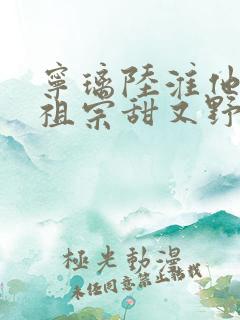 寧璃陸淮他
祖宗甜又野
極光動漫
未經同意禁止轉載